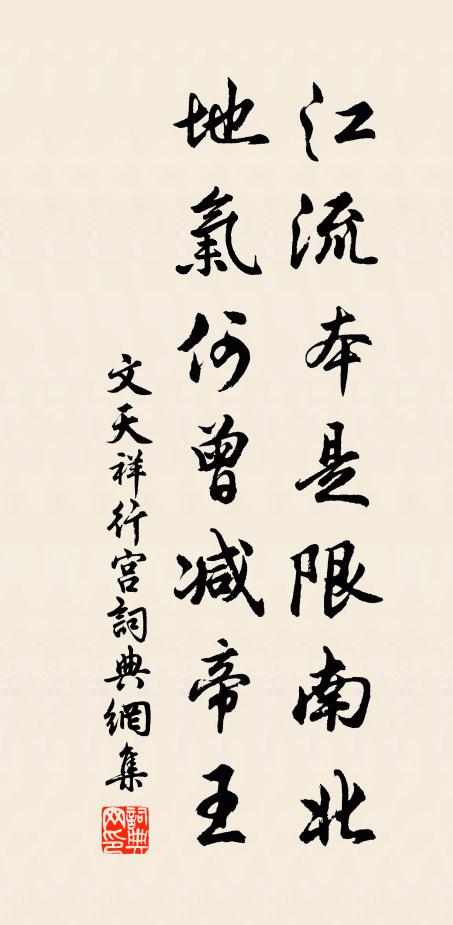 江流本是限南北
地氣何曾減帝王
文天祥行宮詞典網集
詞典网印